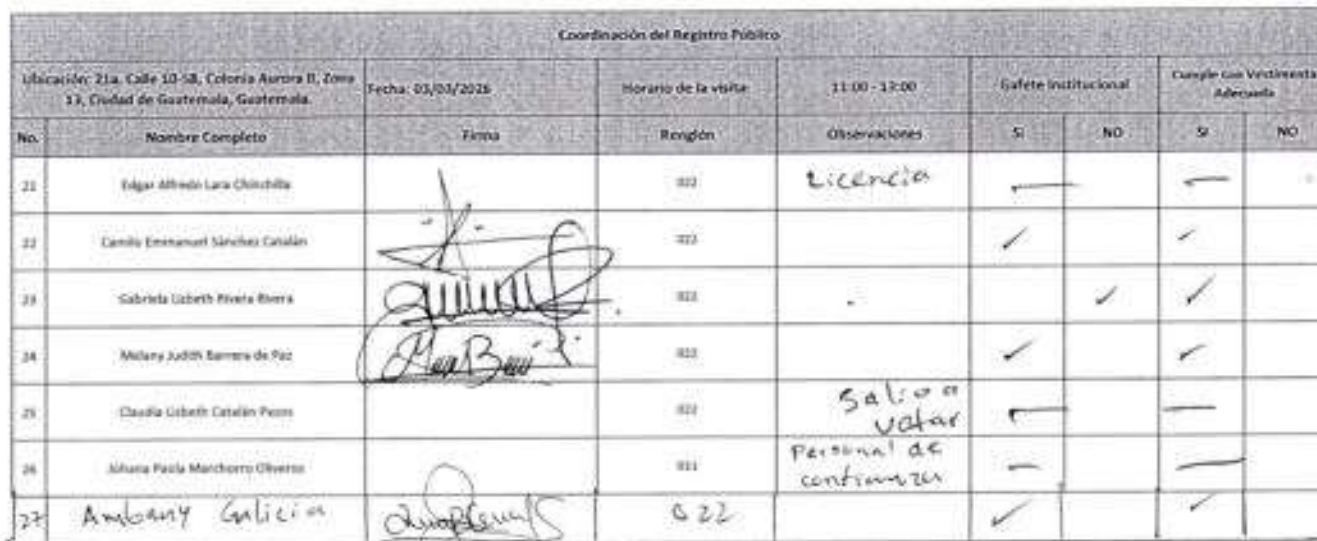 Coordinación del Registro Público
Ubicación: 21a. Calle 10-58, Colonia Aurora II, Zona 13, Ciudad de Guatemala, Guatemala. Fecha: 03/03/2026 Horario de la visita: 11:00 - 13:00 Gafete Institucional Cumple con Vestimenta Adecuada
No. Nombre Completo Firma Renglón Observaciones SI NO SI NO
21 Edgar Alfredo Lara Chinchilla 022 Licencia — —
22 Camilo Emmanuel Sánchez Catalán 022 ✓ ✓
23 Gabriela Lizbeth Rivera Rivera 022 ✓ ✓
24 Melany Judith Barrera de Paz 022 ✓ ✓
25 Claudia Lisbeth Catalán 022 Salio a votar — —
26 Johana Paola Marchorro Oliveros 011 Personal de confianza — —
27 Ambany Galicia 022 ✓ ✓